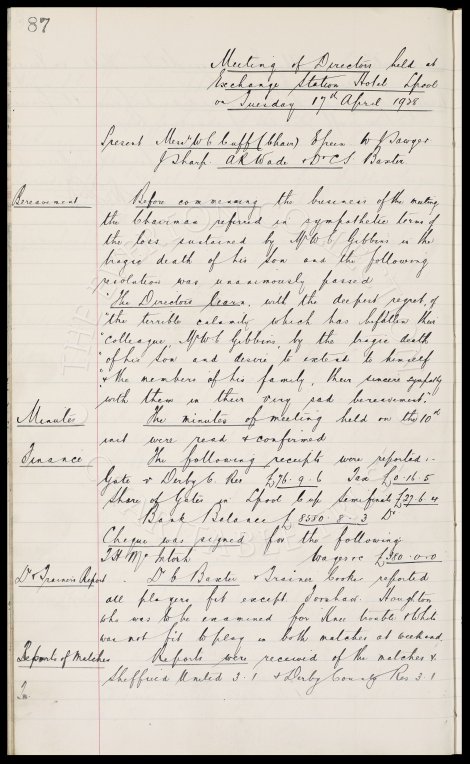 87
Meeting of Directors held at
Exchange Station Hotel Lpool
on Tuesday 17th April 1928
Present Messrs W C Cuff (Chair) E Green W J Sawyer
J Sharp. A R Wade & Dr C S Baxter
Bereavement
Before commencing the business of the meeting
the Chairman referred in sympathetic terms of
the loss sustained by Mr W C Gibbins in the
tragic death of his Son and the following
resolution was unanimously passed
"The Directors learn, with the deepest regret, of
"the terrible calamity which has befallen their
"colleague, Mr W C Gibbins by the tragic death
"of his Son and desire to extend to himself
"& the members of his family, their sincere sympathy
with them in their very sad bereavement"
Minutes
The minutes of meeting held on the 10th
inst were read & confirmed
Finance
The following receipts were reported:-
Gate v Derby C Res £76.9.6 Tax £0.16.5
Share of Gates in Lpool Cup Semifinals £27.6.4
Bank Balance £8580.8.3 Dr
Cheque was signed for the following
T H McIntosh Wages &c £380.0.0
Dr & Trainers Report
Dr C Baxter & Trainer Cooke reported
all players fit except Houghton
who was to be examined for Knee trouble & White
was not fit to play in both matches at weekend.
Reports of Matches
Reports were received of the matches v
Sheffield United 3.1 & Derby County Res 3.1